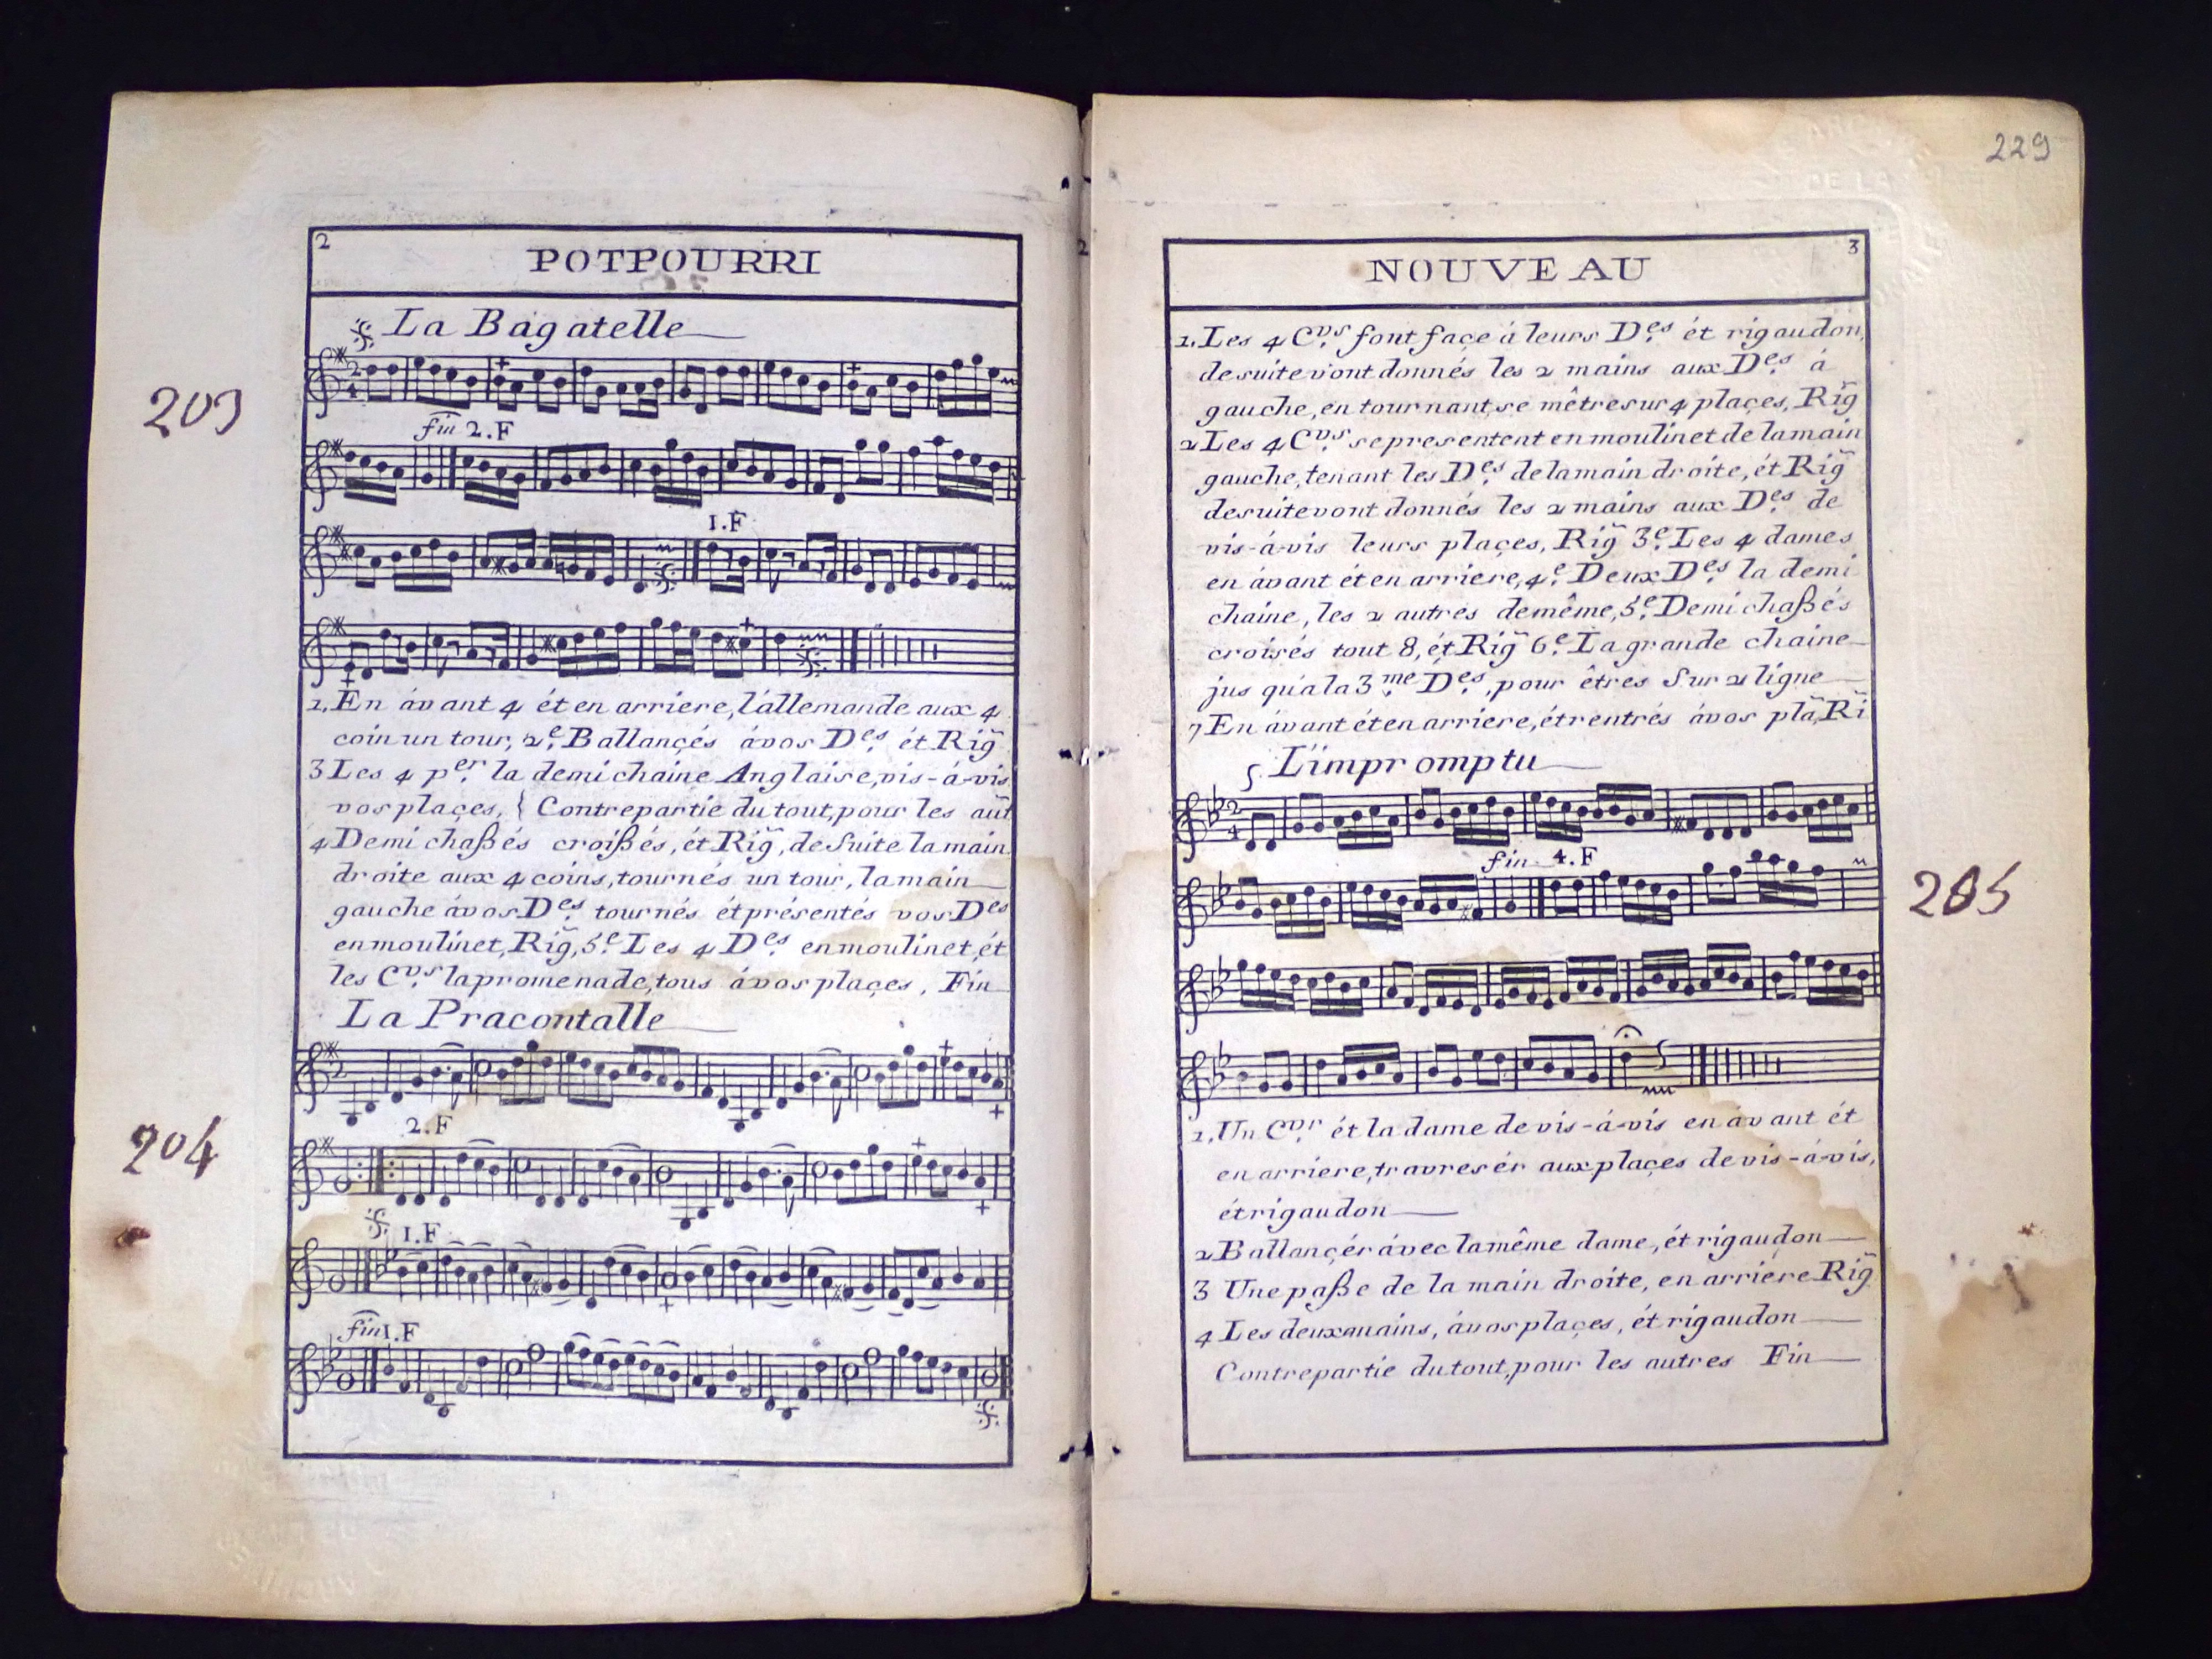 2
POTPOURRI
La Bagatelle
203
fin 2.F
1.F
1, En ávant 4 ét en arriere, l'állemande aux 4
coin un tour, 2.e Ballançés ávos D.es ét Rig̃
3 Les 4 p.er la demi chaine Anglaise, vis-á-vis
vos plaçes, { Contrepartie du tout, pour les aut̃
4 Demi chaßés croißés, ét Rig̃, de suite la main
droite aux 4 coins, tournés un tour, la main
gauche ávos D.es tournés ét présentés vos D.es
en moulinet, Rig̃, 5.e Les 4 D.es en moulinet, ét
les C.vrs la promenade, tous ávos plaçes, Fin
La Pracontalle
204
2.F
1.F
fin 1.F
229
3
NOUVEAU
1. Les 4 C.vrs font façe á leurs D.es ét rigaudon,
de suite vont donnés les 2 mains aux D.es á
gauche, en tournant, se mêtre sur 4 plaçes, Rig̃
2 Les 4 C.vrs se presentent en moulinet de la main
gauche, tenant les D.es de la main droite, ét Rig̃
de suite vont donnés les 2 mains aux D.es de
vis-á-vis leurs plaçes, Rig̃ 3.e Les 4 dames
en ávant ét en arriere, 4.e Deux D.es la demi
chaine, les 2 autres de même, 5.e Demi chaßés
croisés tout 8, ét Rig̃ 6.e La grande chaine
jus qu'a la 3.me D.es, pour êtres sur 2 ligne
7 En ávant ét en arriere, ét rentrés ávos plã, Rĩ
L'impromptu
2
4
fin 4.F
205
1, Un C.vr ét la dame de vis-á-vis en ávant ét
en arriere, travresér aux plaçes de vis-á-vis,
ét rigaudon
2 Ballançér ávec la même dame, ét rigaudon
3 Une paße de la main droite, en arriére Rig̃
4 Les deux mains, ávos plaçes, ét rigaudon
Contrepartie du tout, pour les autres Fin